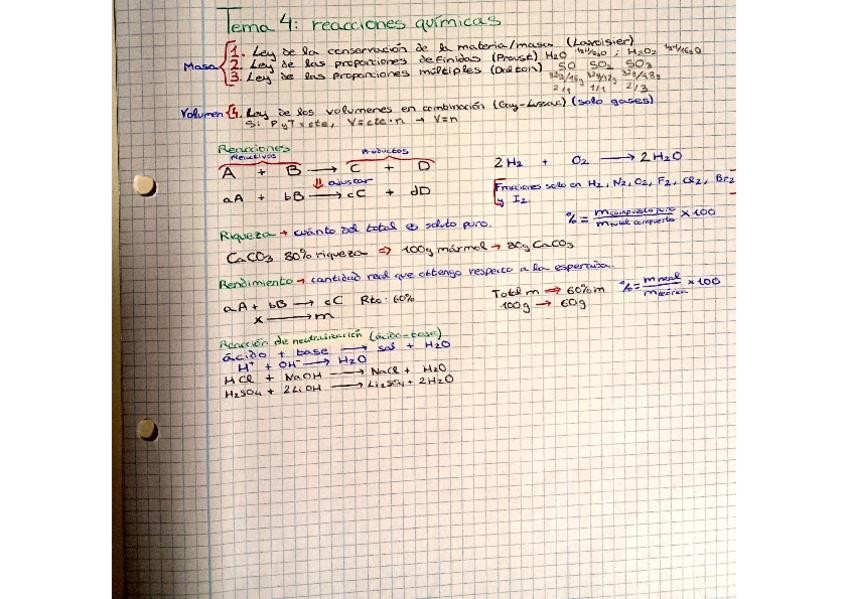 Tema 4: reacciones químicas
Masa
1. Ley de la conservación de la materia/masa (Lavoisier)
2. Ley de las proporciones definidas (Proust) H2O ; H2O2
3. Ley de las proporciones múltiples (Dalton) SO SO2 SO3
2/1 1/1 2/3
Volumen 4. Ley de los volumenes en combinación (Gay-Lussac) (solo gases)
Si P y T = cte, V = cte·n → V=n
Reacciones
Reactivos Productos
A + B → C + D
⇓ ajustar
aA + bB → cC + dD
2H2 + O2 → 2H2O
Fracciones solo en H2, N2, O2, F2, Cl2, Br2
y I2
Riqueza → cuánto del total es soluto puro.
% = m compuesto puro / m total compuesto × 100
CaCO3 80% riqueza ⇒ 100g mármol → 80g CaCO3
Rendimiento → cantidad real que obtengo respecto a la esperada.
aA + bB → cC Rto: 60%
x → m
Total m ⇒ 60% m
100g → 60g
% = m real / m teórica × 100
Reacción de neutralización (ácido-base)
ácido + base → sal + H2O
H+ + OH- → H2O
HCl + NaOH → NaCl + H2O
H2SO4 + 2LiOH → Li2SO4 + 2H2O